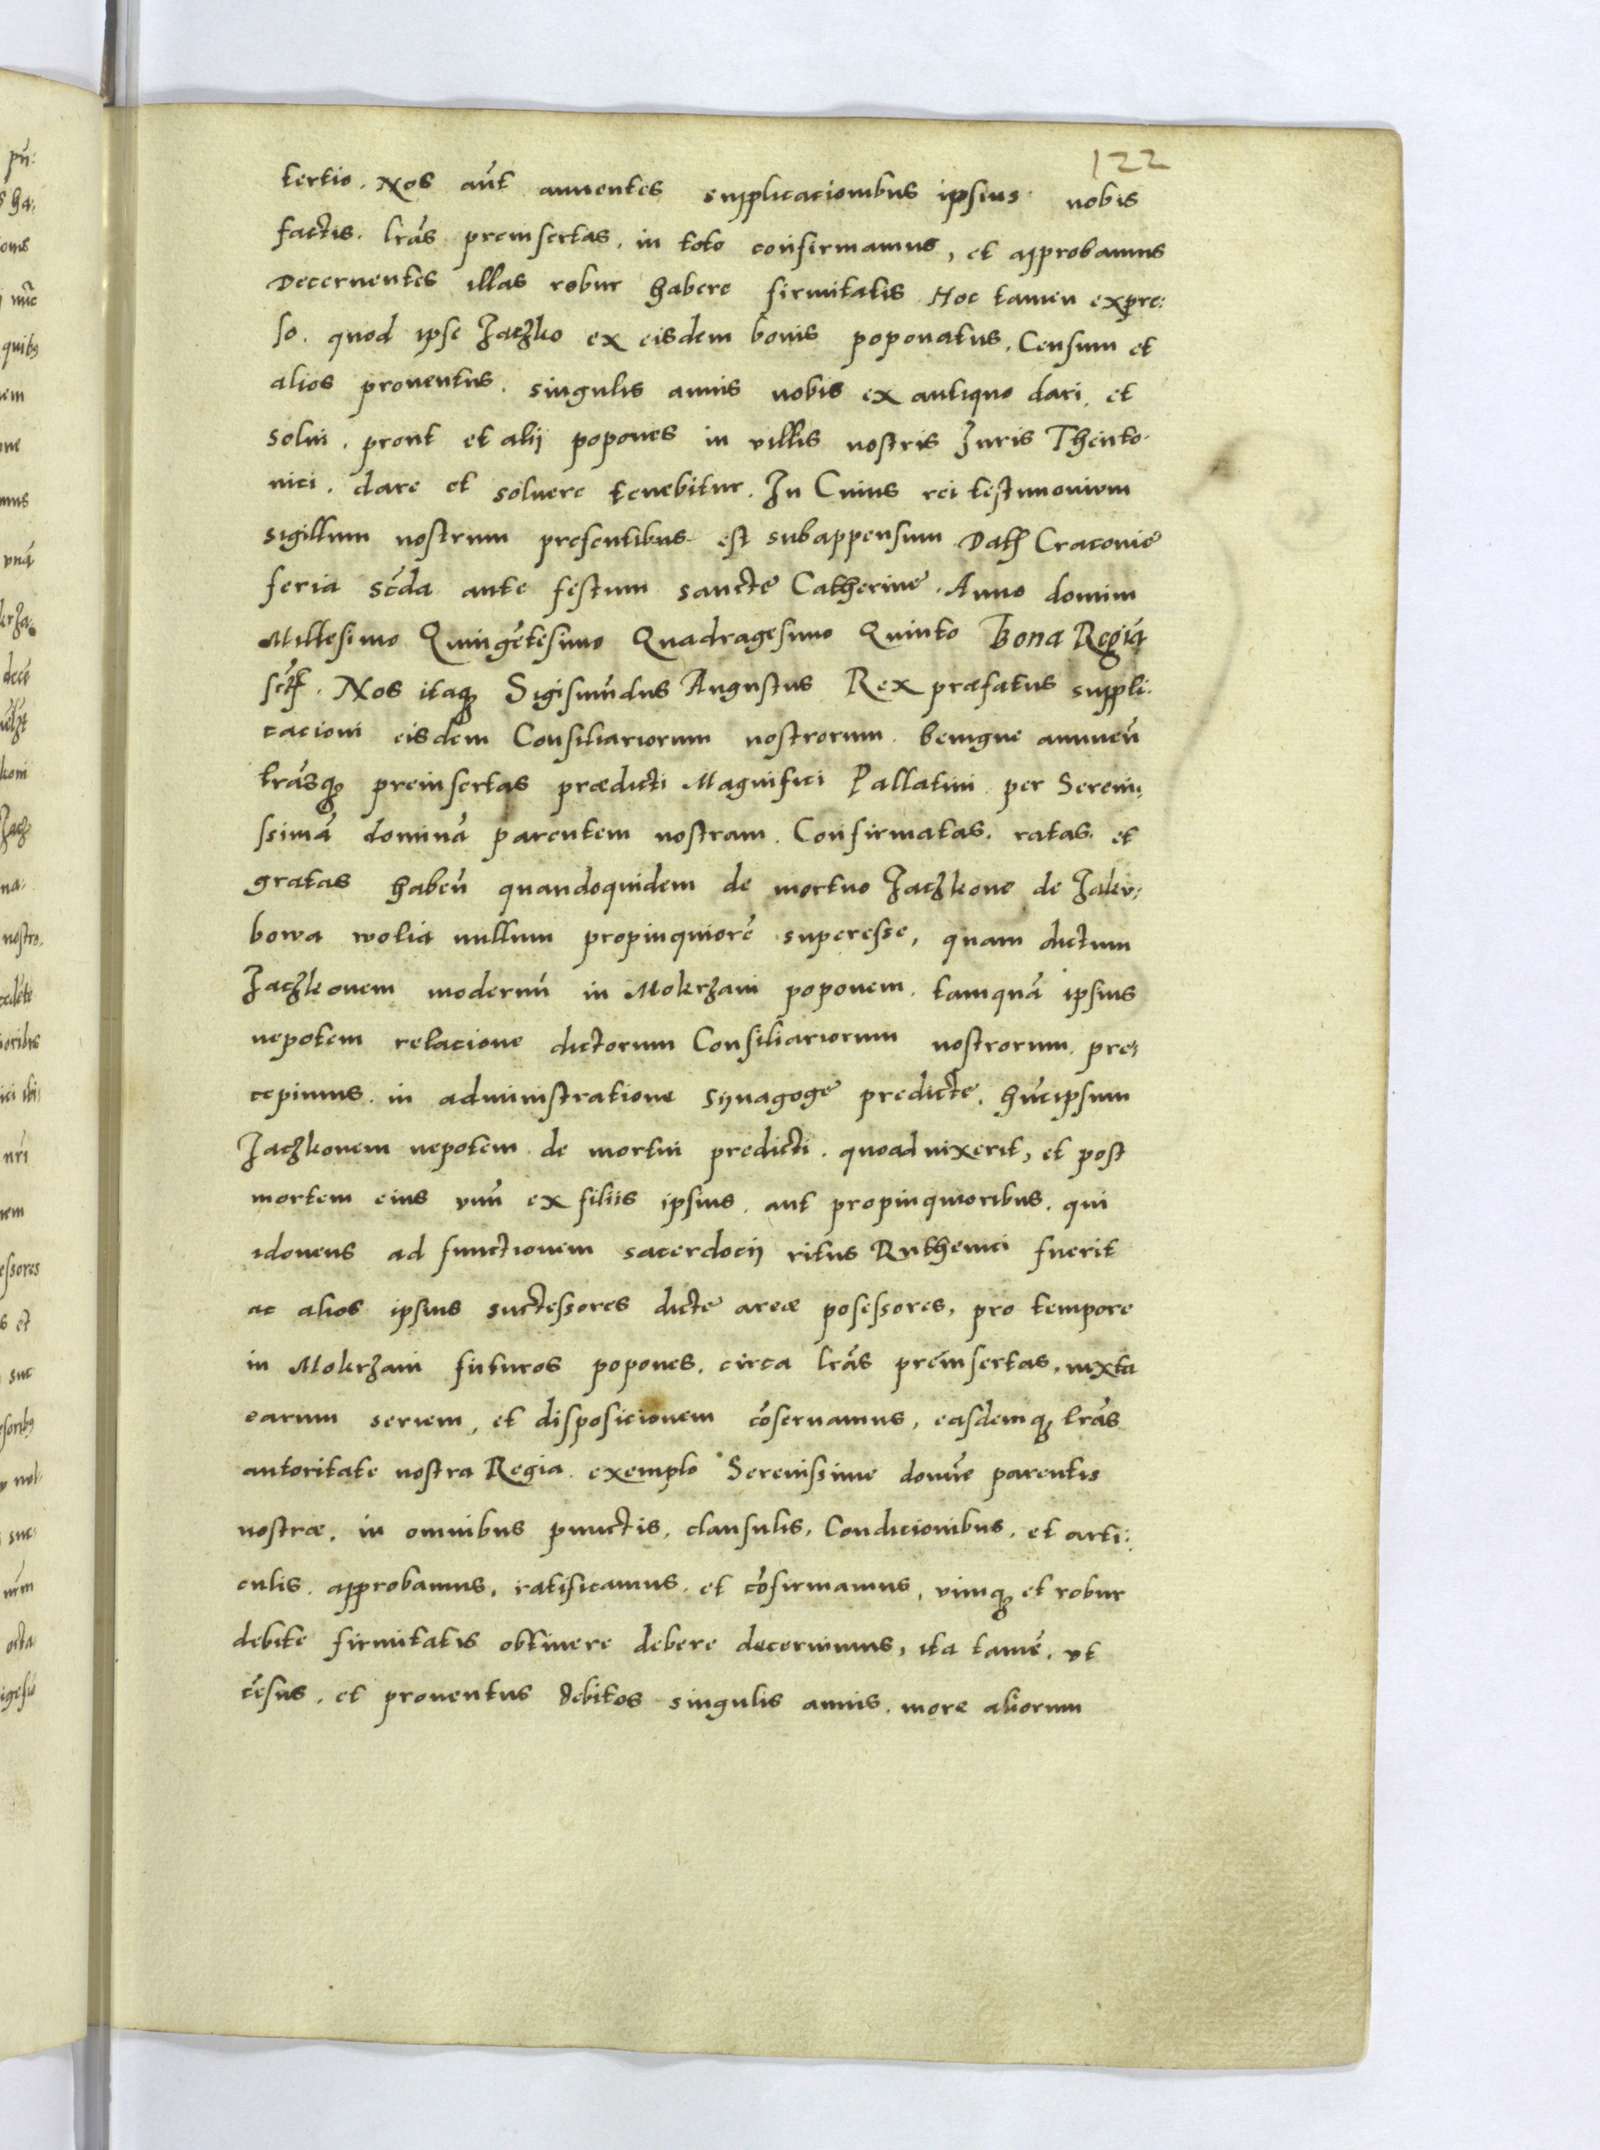 122
tertio. Nos aūt annuentes supplicacionibus ipsius nobis
factis. lrās preinsertas. in toto confirmamus, et approbamus
Decernentes illas robur habere firmitatis. Hoc tamen expre:
so. quod ipse Jaczko ex eisdem bonis poponatus. Censum et
alios prouentus. singulis annis nobis ex antiquo dari, et
solui. prout et alij popones in villis nostris Juris Theuto-
nici. dare et soluere tenebitur. In Cuius rei testimonium
sigillum nostrum presentibus est subappensum. Datƺ Cracouie
feria scđa ante festum sancte Catherine. Anno domini
Millesimo Quingētesimo Quadragesimo Quinto Bona Reginā
scrpt. Nos itaqȝ Sigismūdus Augustus Rex præfatus suppli:
cacioni eisdem Consiliariorum nostrorum. benigne annuen̄
lrāsqȝ preinsertas prædicti Magnifici Pallatini per Sereni,
ssimā dominā parentem nostram. Confirmatas. ratas. et
gratas haben̄ quandoquidem de mortuo Jaczkone de Jaker,
bowa wolia nullum propinquiorē superesse, quam dictum
Jaczkonem modernū in Mokrzani poponem. tamquā ipsius
nepotem relacione dictorum Consiliariorum nostrorum. pre,
cepimus. in administratione synagoge predicte. hūcipsum
Jaczkonem nepotem de mortui predicti. quoad uixerit, et post
mortem eius vnū ex filiis ipsius. aut propinquioribus. qui
idoneus ad functionem sacerdocij ritus Ruthenici fuerit
ac alios ipsius suctessores dicte areæ posessores, pro tempore
in Mokrzani futuros popones. circa lrās preinsertas. iuxta
earum seriem, et disposicionem cōseruamus, easdemqȝ lrās
autoritate nostra Regia. exemplo Serenissime domīe parentis
nostræ. in omnibus punctis, clausulis, Condicionibus. et arti:
culis. approbamus, ratificamus. et cōfirmamus, vimqȝ et robur
debite firmitatis obtinere debere decernimus, ita tamē. vt
cēsus. et prouentus debitos singulis annis. more aliorum